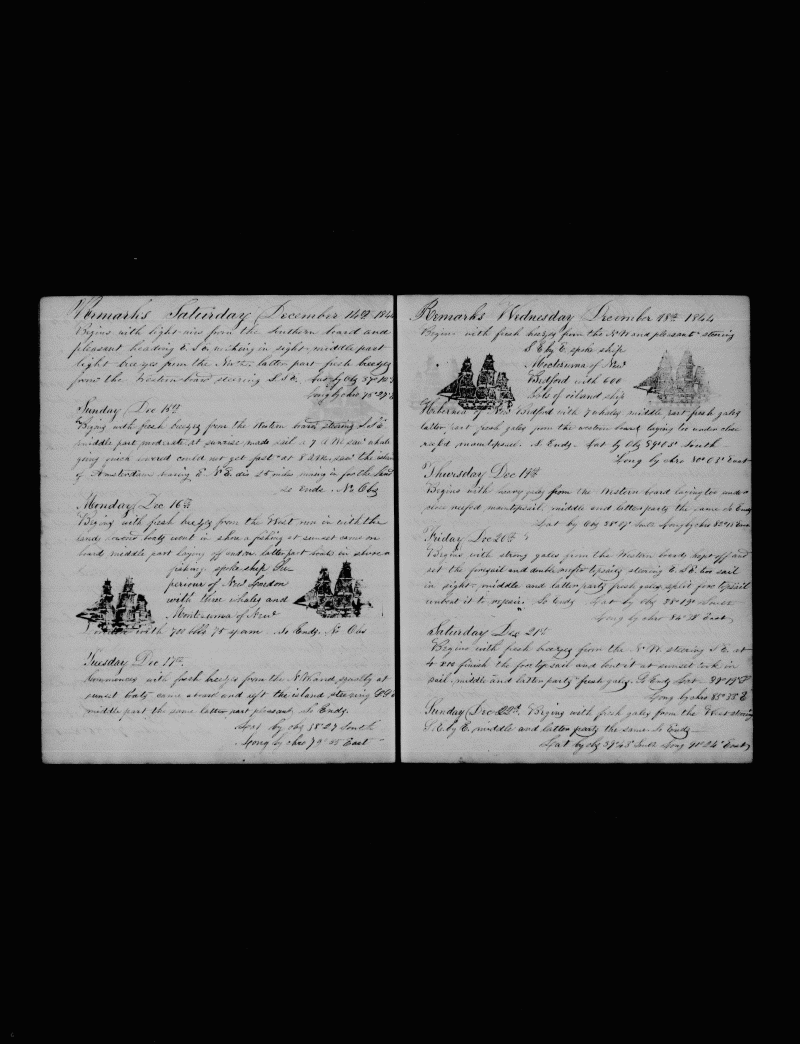 Remarks Saturday December 14th 1844
Begins with light airs from the Southern board and
pleasant heading E. S.E. nothing in sight middle part
light breezes from the latter part fresh breezes
from the Western board steering S.E. Lat by Obs 37° 10
Long by chro 75° 27
Sunday Dec 15th
Begins with fresh breezes from the Western board steering S.S.E
middle part moderate at sunrise made sail at 7 A.M. saw whale
going quick could not get fast at 8 saw the island
of Amsterdam bearing E. dis 25 miles in for the land
so ends No Obs
Monday Dec 16th
Begins with fresh breezes from the West run in with the
land boats went in shore a fishing at sunset came on
board middle part laying off and on latter part boats in shore a
fishing. spoke ship
of New London
with three whales and
Montezuma of New
with 700 bbls 75 sperm So Ends. No Obs
Tuesday Dec 17th
Commences with fresh breezes from the N.W. and squally at
sunset boats came aboard and left the island steering
middle part the same latter part pleasant So Ends.
Lat by obs 38° 27 South
Long by chro 79° East
Remarks Wednesday December 18th 1844
Begins with fresh breezes from the N.W. and pleasant steering
S.E. by E. spoke ship
Montezuma of New
Bedford with 600
bbls of oil and ship
of New Bedford with 7 whales middle part fresh gales
latter part fresh gales from the western board laying too under close
reefed maintopsail. So Ends. Lat by Obs 39° 05' South
Long by chro 80° 01' East
Thursday Dec 19th
Begins with heavy gales from the Western board laying too under
close reefed maintopsail. middle and latter parts the same So Ends
Lat by Obs 38° 17' South Long by chro 82° East
Friday Dec 20th
Begins with strong gales from the Western board kept off and
set the foresail and double reefed topsails steering E. S.E. one sail
in sight. middle and latter parts fresh gales. split fore topsail
unbent it to repair. So Ends Lat by obs 38° 19' South
Long by chro 84° East
Saturday Dec 21st
Begins with fresh breezes from the N.W. steering S.E. at
4 finish the fore topsail and bent it at sunset took in
sail. middle and latter parts fresh gales. So Ends Lat 39° 17'
Long by chro 88° 38' E
Sunday Dec 22nd. Begins with fresh gales from the West steering
S.E. by E. middle and latter parts the same So Ends
Lat by obs 39° 48' South Long 91° 24' East